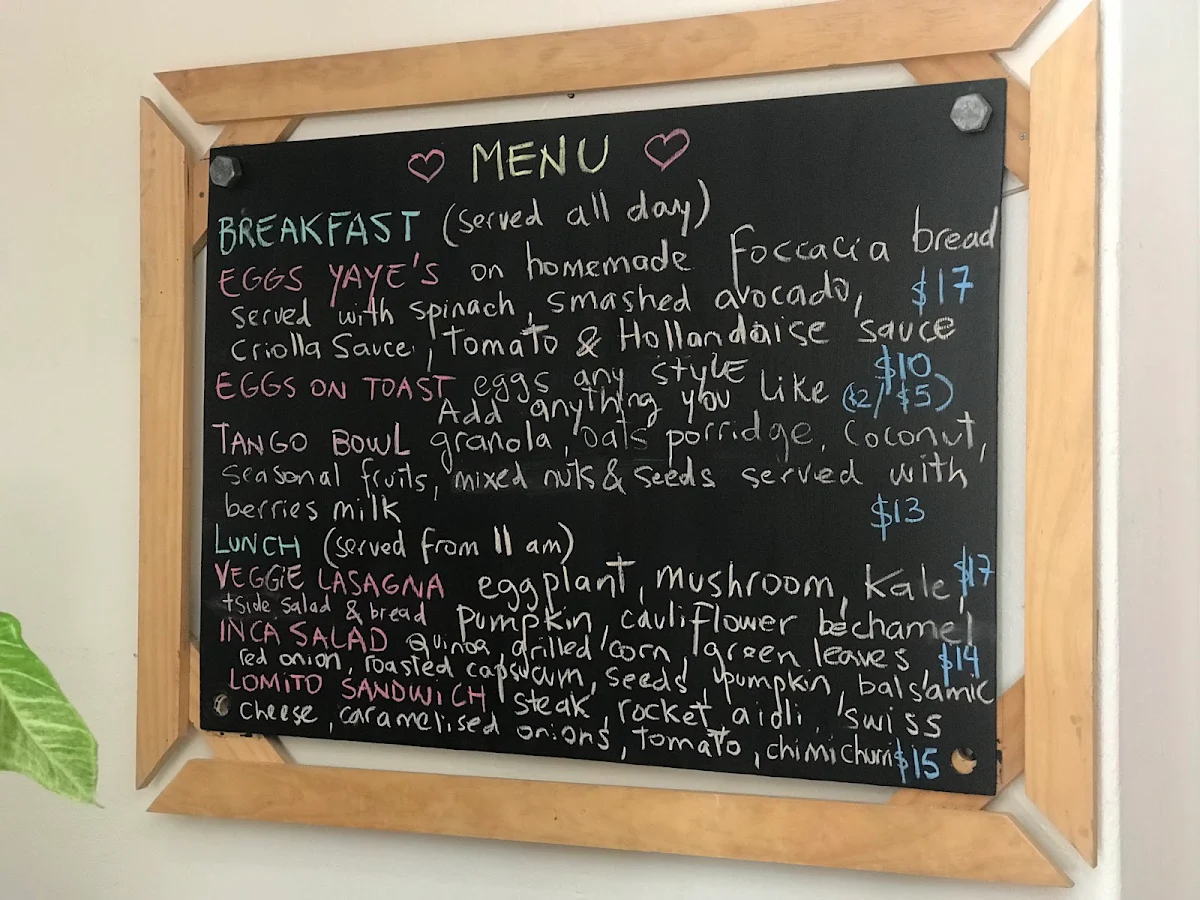 ♡ MENU ♡
BREAKFAST (served all day)
EGGS YAYE'S on homemade foccacia bread
served with spinach, smashed avocado, $17
criolla sauce, Tomato & Hollandaise sauce
EGGS ON TOAST eggs any STYLE $10
Add anything you Like ($2/$5)
TANGO BOWL granola, oats porridge, coconut,
seasonal fruits, mixed nuts & seeds served with
berries milk $13
LUNCH (served from 11 am)
VEGGIE LASAGNA eggplant, mushroom, kale, $17
+side salad & bread pumpkin, cauliflower bechamel
INCA SALAD quinoa, grilled corn, green leaves, $14
red onion, roasted capsucum, seeds, pumpkin, balsamic
LOMITO SANDWICH steak, rocket, aioli, swiss
cheese, caramelised onions, tomato, chimichurri $15